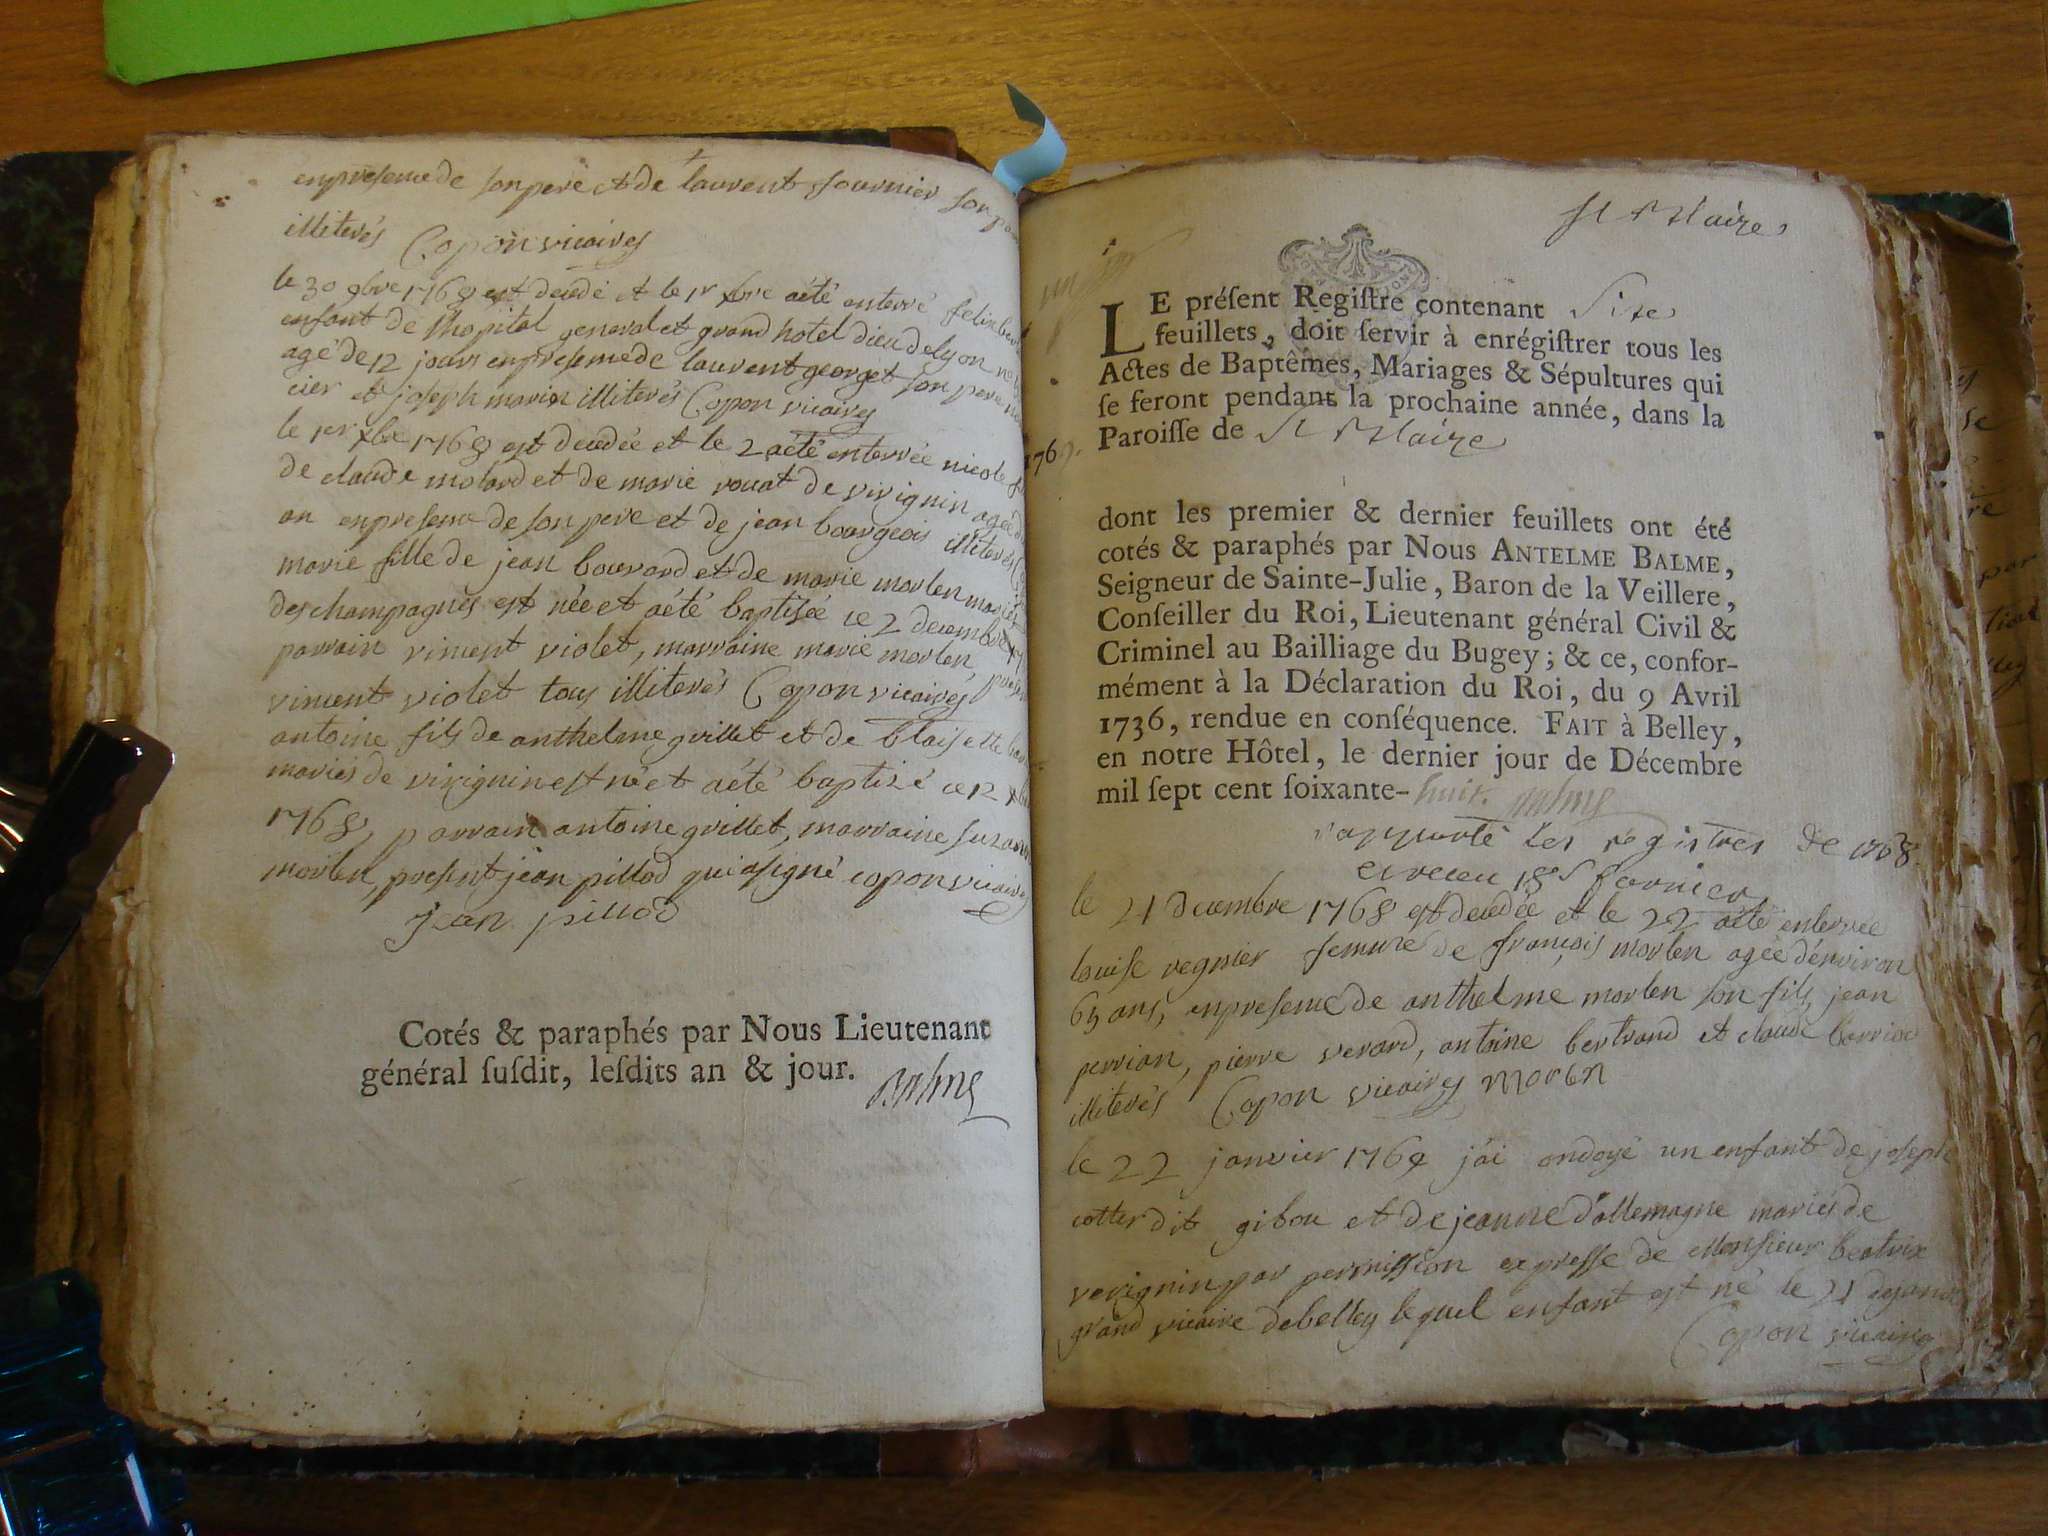 en presence de son pere et de laurent fournier son
illiterés Copon vicaires
le 30 9bre 1768 est decedé et le 1r xbre aété enterré felix
enfant de lhopital general et grand hotel dieu de lyon
agé de 12 jours en presence de laurent georget son pere
cier et joseph marin illiterés Copon vicaires
le 1er xbre 1768 est decedée et le 2 aété enterrée nicole
de claude molard et de marie rouat de virignin agée
an en presence de son pere et de jean bourgeois illiterés
marie fille de jean bouvard et de marie morlen mariés
des champagnes est née et aété baptisée ce 2 decembre
parrain vincent violet, marraine marie morlen
vincent violet tous illiterés Copon vicaires
antoine fils de anthelme grillet et de blaisette
mariés de virignin est né et aété baptizé ce 12
1768, parrain antoine grillet, marraine
morlen, present jean pillod qui a signé copon vicaires
jean pillod
Cotés & paraphés par Nous Lieutenant
général ſuſdit, leſdits an & jour. Balme
St Blaize
LE préſent Regiſtre contenant Six
feuillets, doit ſervir à enrégiſtrer tous les
Actes de Baptêmes, Mariages & Sépultures qui
ſe feront pendant la prochaine année, dans la
Paroiſſe de St Blaize
1769.
dont les premier & dernier feuillets ont été
cotés & paraphés par Nous ANTELME BALME,
Seigneur de Sainte-Julie, Baron de la Veillere,
Conſeiller du Roi, Lieutenant général Civil &
Criminel au Bailliage du Bugey; & ce, confor-
mément à la Déclaration du Roi, du 9 Avril
1736, rendue en conſéquence. FAIT à Belley,
en notre Hôtel, le dernier jour de Décembre
mil ſept cent ſoixante-huit. Balme
rapporté les registres de 1768
et receu 18s fornier
le 21 decembre 1768 est decedée et le 22 aété enterrée
louise regnier femme de françois morlen agée d'environ
65 ans, en presence de anthelme morlen son fils, jean
perrian, pierre verard, antoine bertrand et claude
illiterés Copon vicaires moren
le 22 janvier 1769 j'ai ondoyé un enfant de joseph
cotter dit gibou et de jeanne d'allemagne mariés de
verignin par permission expresse de Monsieur beatrix
grand vicaire de belley lequel enfant est né le 21
Copon vicaires